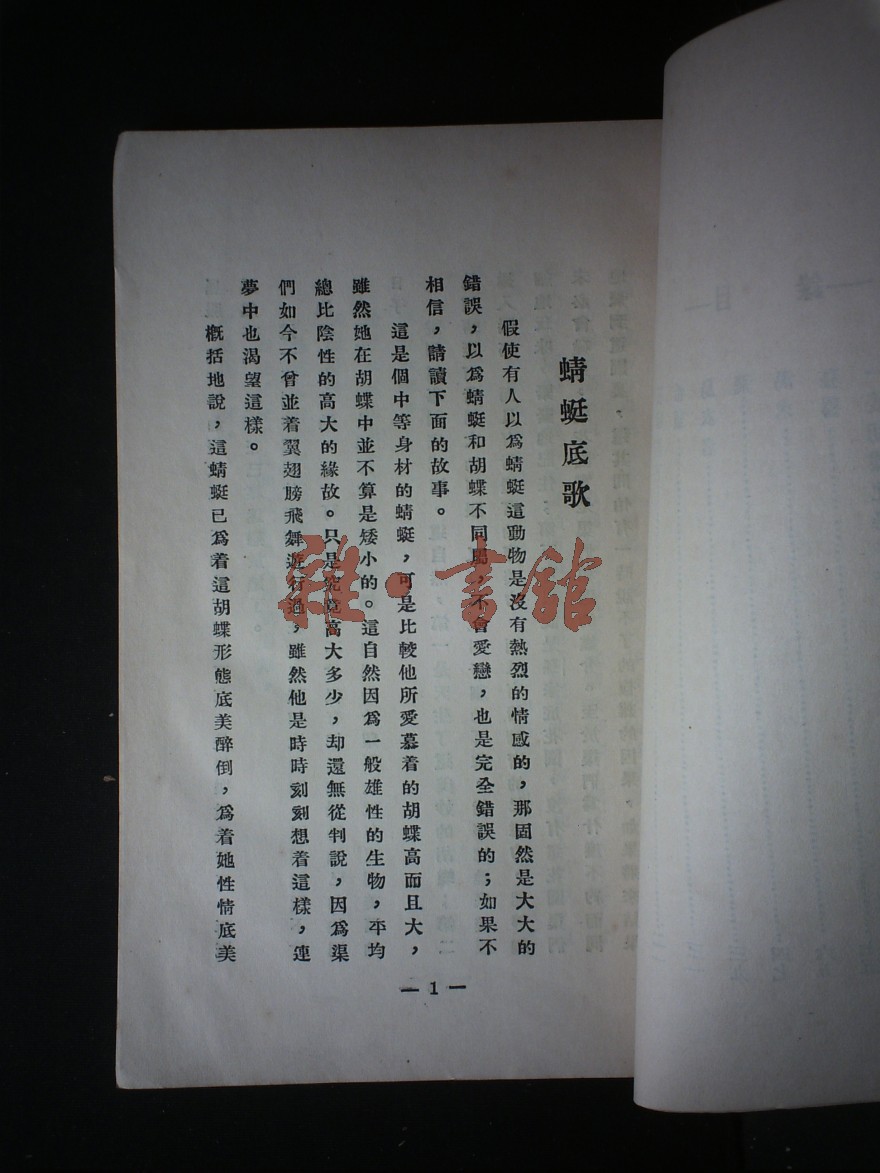 蜻蜓底歌
假使有人以爲蜻蜓這動物是沒有熱烈的情感的，那固然是大大的
錯誤，以爲蜻蜓和胡蝶不同屬，不會愛戀，也是完全錯誤的；如果不
相信，請讀下面的故事。
這是個中等身材的蜻蜓，可是比較他所愛慕着的胡蝶高而且大，
雖然她在胡蝶中並不算是矮小的。這自然因爲一般雄性的生物，平均
總比陰性的高大的緣故。只是究竟高大多少，却還無從判說，因爲渠
們如今不曾並着翼翅膀飛舞遊行過，雖然他是時時刻刻想着這樣，連
夢中也渴望這樣。
概括地說，這蜻蜓已爲着這胡蝶形態底美醉倒，爲着她性情底美
— 1 —
雜·書館
目錄